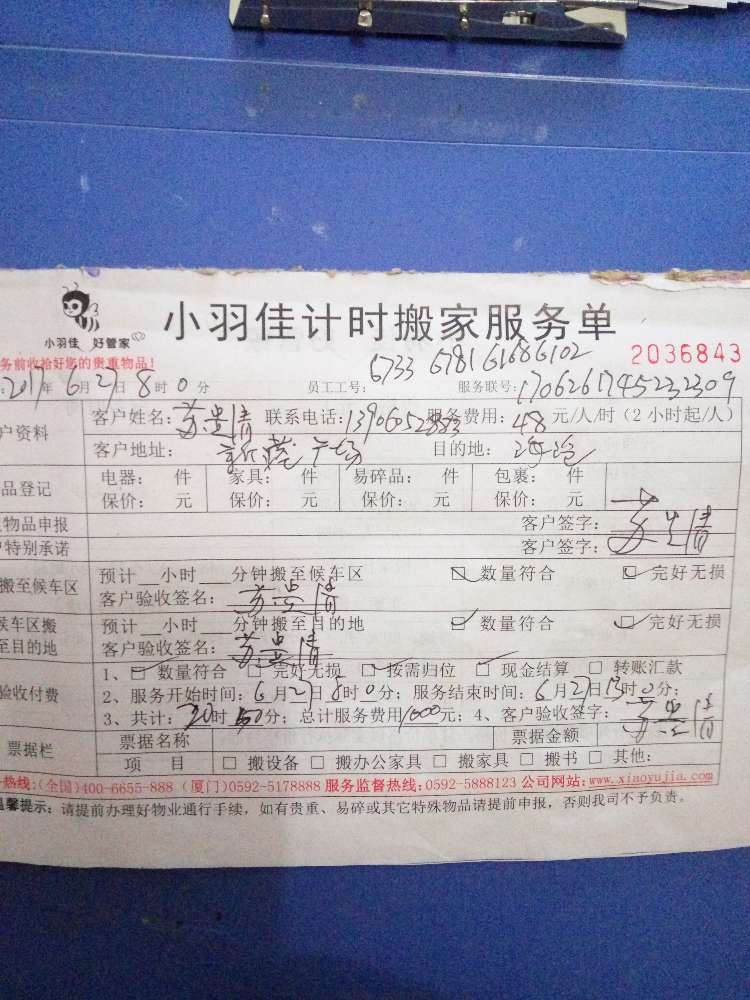 小羽佳计时搬家服务单
小羽佳 好管家
务前收拾好您的贵重物品!
2036843
6733 6781 6168 6102
:2017年6月27日8时0分 员工工号: 服务联号:1706261745232309
户资料 客户姓名: 清 联系电话:139 服务费用:48元/人/时(2小时起/人)
客户地址: 新 广场 目的地:海沧
品登记 电器: 件 家具: 件 易碎品: 件 包裹: 件
保价: 元 保价: 元 保价: 元 保价: 元
物品申报 客户签字:
户特别承诺 客户签字: 清
搬至候车区 预计__小时___分钟搬至候车区 数量符合 完好无损
客户验收签名: 清
候车区搬 预计__小时___分钟搬至目的地 数量符合 完好无损
至目的地 客户验收签名: 清
验收付费 1、数量符合 完好无损 按需归位 现金结算 转账汇款
2、服务开始时间:6月27日8时0分; 服务结束时间:6月27日13时0分;
3、共计: 20时 分; 总计服务费用1000元; 4、客户验收签字: 清
票据栏 票据名称 票据金额
项 目 搬设备 搬办公家具 搬家具 搬书 其他:
热线:(全国)400-6655-888 (厦门)0592-5178888 服务监督热线:0592-5888123 公司网站:www.xiaoyujia.com
温馨提示: 请提前办理好物业通行手续,如有贵重、易碎或其它特殊物品请提前申报,否则我司不予负责。